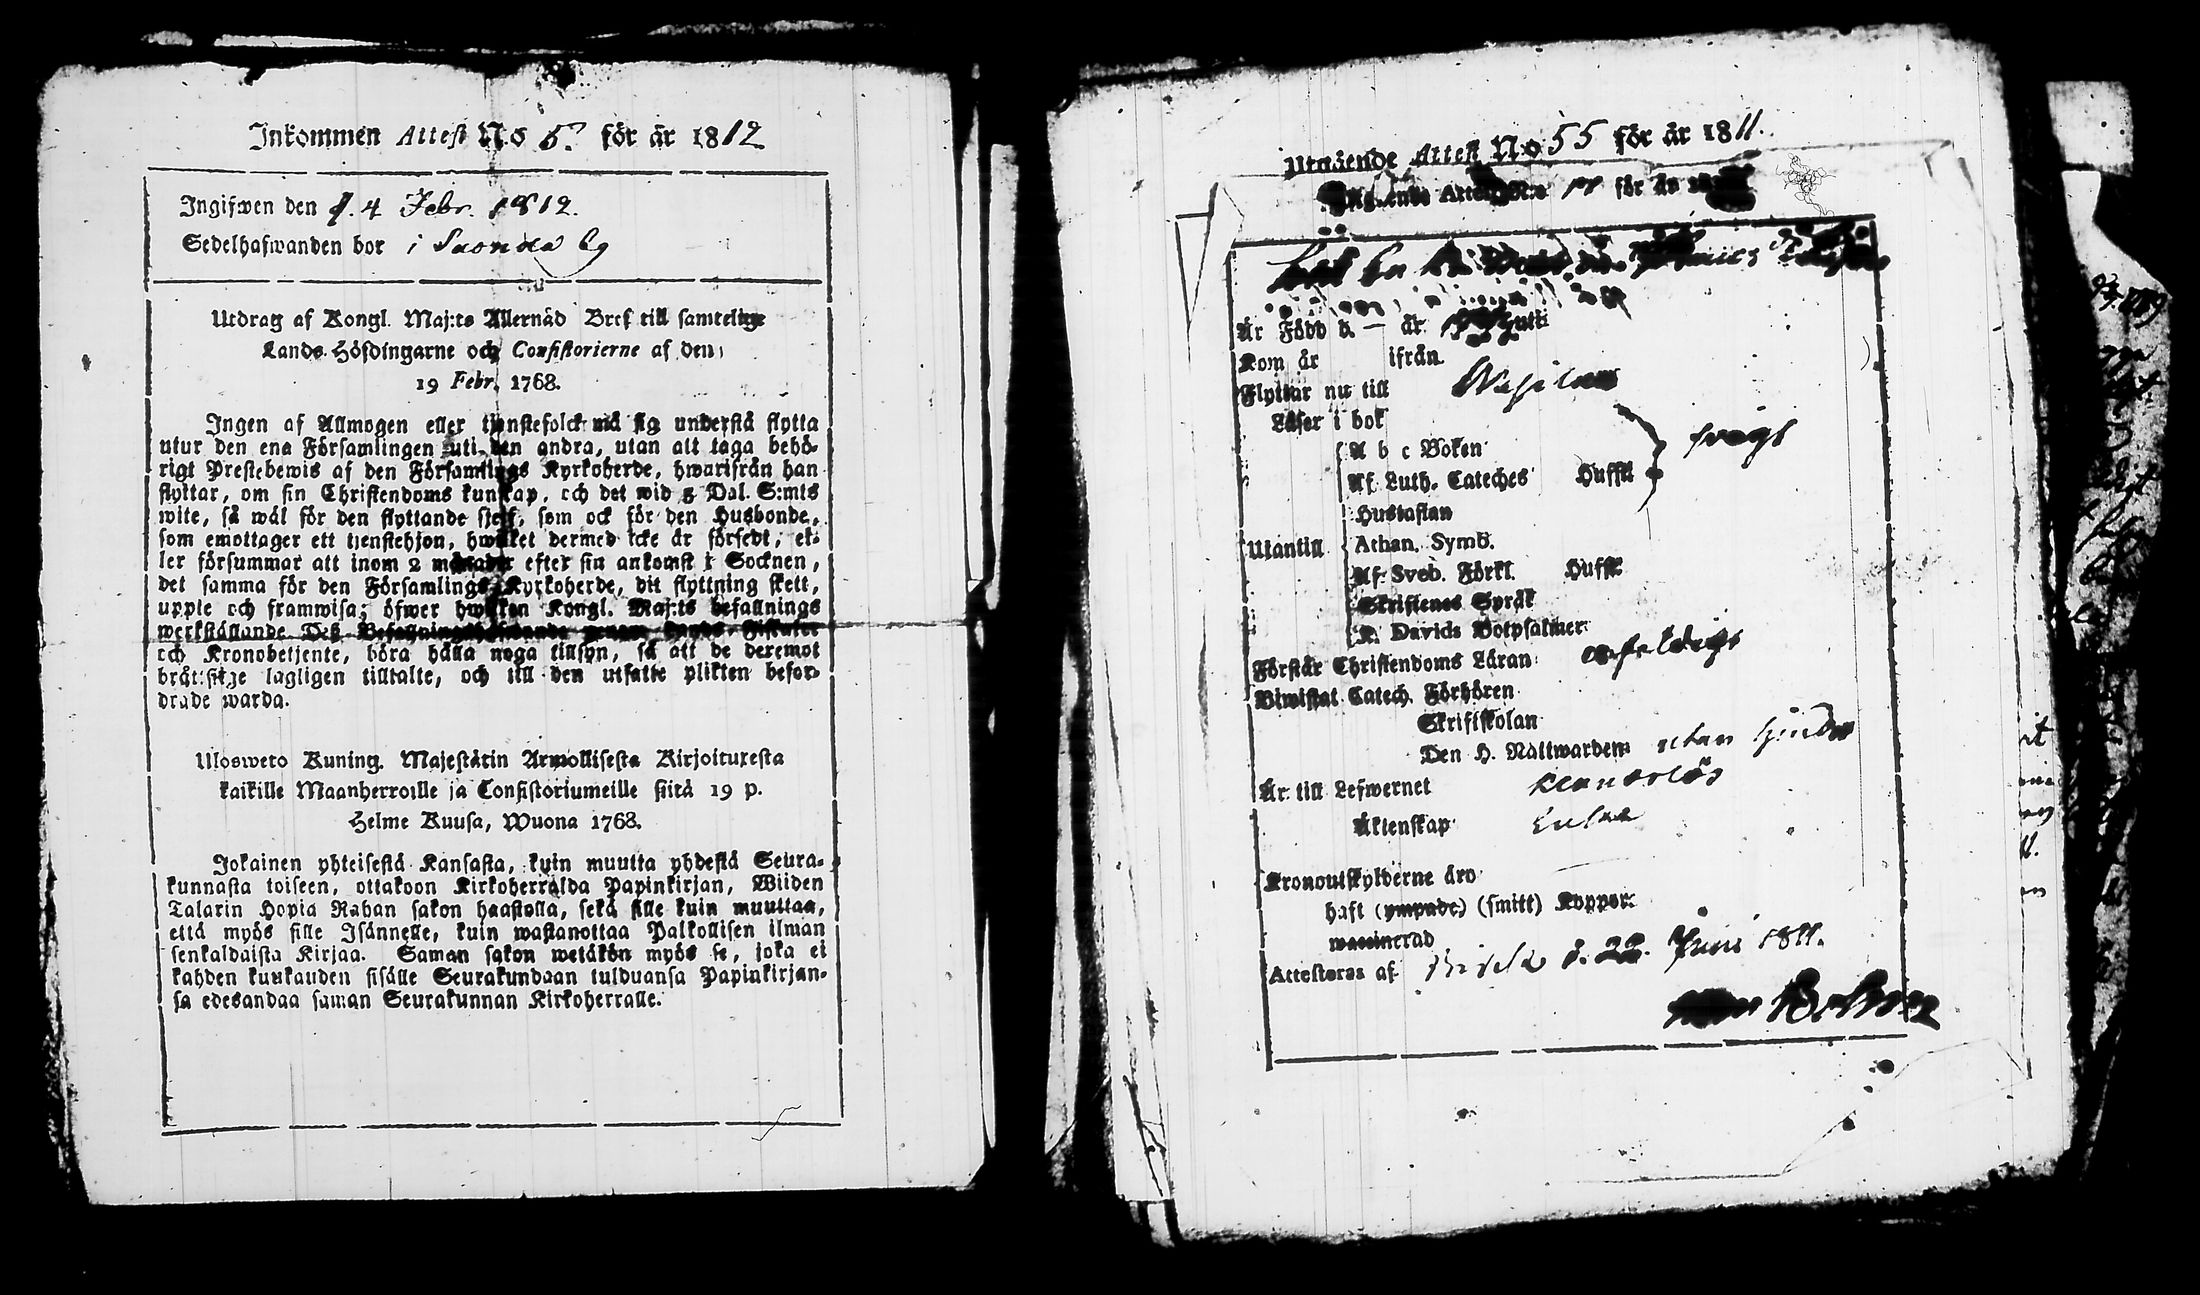 Inkommen Attest N:o 5? för är 1812
Ingifwen den d. 4 Febr. 1812.
Sedelhafwanden bor i
Utdrag af Kongl. Maj:ts Allernåd Bref till samtelige
Lands Höfdingarne och Consistorierne af den
19 Febr. 1768.
Ingen af Allmogen eller tjenstefolck må sig understå flytta
utur den ena Församlingen uti den andra, utan att taga behö-
rigt Prestebewis af den Församlings Kyrkoherde, hwarifrån han
flyttar, om sin Christendoms kunskap, och det wid 5 Dal. S:mts
wite, så wäl för den flyttande sjelf, som ock för den Husbonde,
som emottager ett tjenstehjon, hwilket dermed icke är försedt, el-
ler försummar att inom 2 månader efter sin ankomst i Socknen,
det samma för den Församlings Kyrkoherde, dit flyttning skett,
uppte och framwisa; öfwer hwilken Kongl. Maj:ts befallnings
werkställande Deß Befallningshafwande genom Lands Fiskaler
och Kronobetjente, böra hålla noga tillsyn, så att de deremot
brätslige lagligen tilltalte, och till den utsatte plikten befor-
drade warda.
Ulosweto Kuning. Majestätin Armollisesta Kirjoituxesta
kaikille Maanherroille ja Consistoriumeille siitä 19 p.
Helme Kuusa, Wuona 1768.
Jokainen yhteisestä Kansasta, kuin muutta yhdestä Seura-
kunnasta toiseen, ottakoon Kirkoherralda Papinkirjan, Wiiden
Talarin Hopia Rahan sakon haastolla, sekä sille kuin muuttaa,
että myös sille Isännelle, kuin wastanottaa Palkollisen ilman
senkaldaista Kirjaa. Saman sakon wetäkön myös se, joka ei
kahden kuukauden sisälle Seurakundaan tulduansa Papinkirjan-
sa edesandaa saman Seurakunnan Kirkoherralle.
Utgående Attest N:o 55 för är 1811.
Utgående Attest N:o för är 18
Är Född d. — år
Kom år ifrån
Flyttar nu till
Läser i bok
A b c Boken
Af Luth. Cateches Hufft
Hustaflan
Utantill Athan. Symb.
Af Sveb. Förkl. Hufft
Skriftenes Språk
K. Davids Botpsalmer
Förstår Christendoms Läran
Biwistat Catech. Förhören
Skriftskolan
Den H. Nattwarden utan hinder
Är till Lefwernet klanderlös
Äktenskap
Kronoutskylderne äro
haft (ympade) (smitt) Koppor
waccinerad
Attesteras af d. 22. Juni 1811.